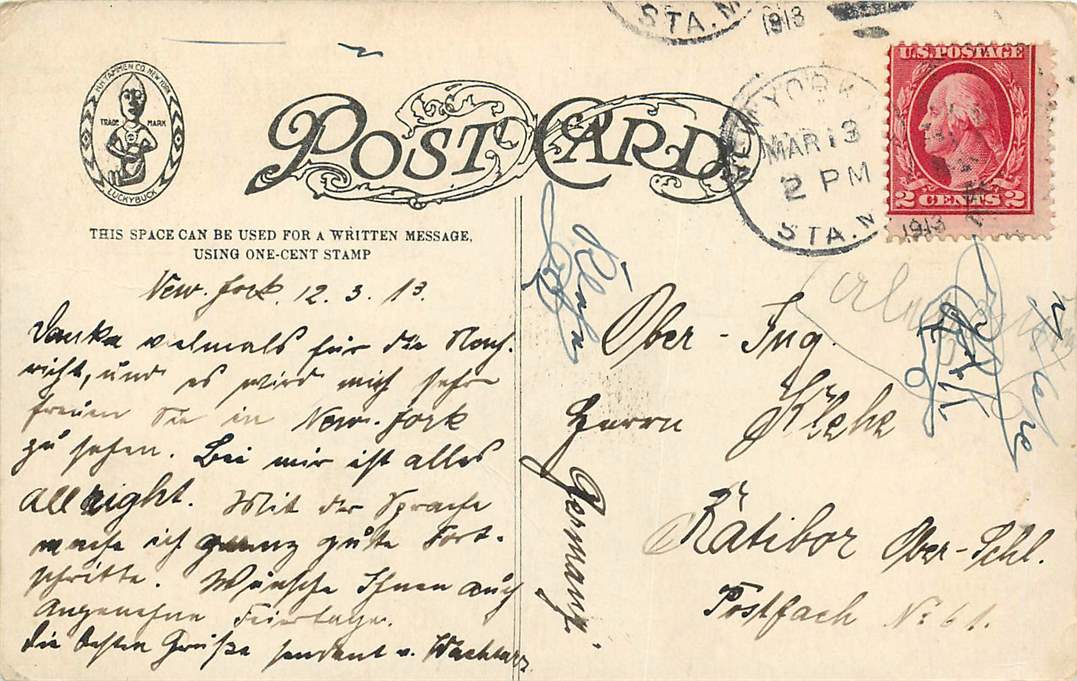 H.H. TAMMEN CO. NEW YORK
TRADE MARK
LUCKYBUCK
POST CARD
STA. M
1913
NEW YORK
MAR 13
2 PM
STA. M
1913
U.S. POSTAGE
2 CENTS 2
THIS SPACE CAN BE USED FOR A WRITTEN MESSAGE,
USING ONE-CENT STAMP
New-York, 12. 3. 13.
Danke vielmals für die Nach-
richt, und es wird mich sehr
freuen Sie in New-York
zu sehen. Bei mir ist alles
all right. Mit der Sprache
mache ich ganz gute Fort-
schritte. Wünsche Ihnen auch
angenehme Feiertage.
Die besten Grüße sendet v.
Ober-Ing.
Herrn
Ratibor Ober-Schl.
Postfach No 61.
Germany.